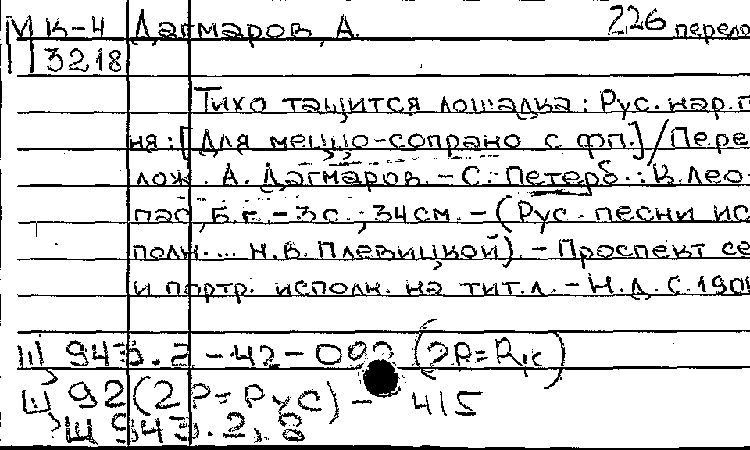 МК-4 Дагмаров, А. 226 перело
3218
Тихо тащится лошадка: Рус. нар. п
ня: [Для меццо-сопрано с фп.] / Пере
лож. А. Дагмаров. - С.-Петерб.: В. Лео-
пас, Б.г. - 3 с.; 34 см. - (Рус. песни ис
полн. ... Н.В. Плевицкой). - Проспект се
и портр. исполн. на тит. л. - Н.Д. С.
Ш 943.2-42-092 (2Р=Рус)
Ш 92(2Р=Рус) - 415
Ш 943.2,8